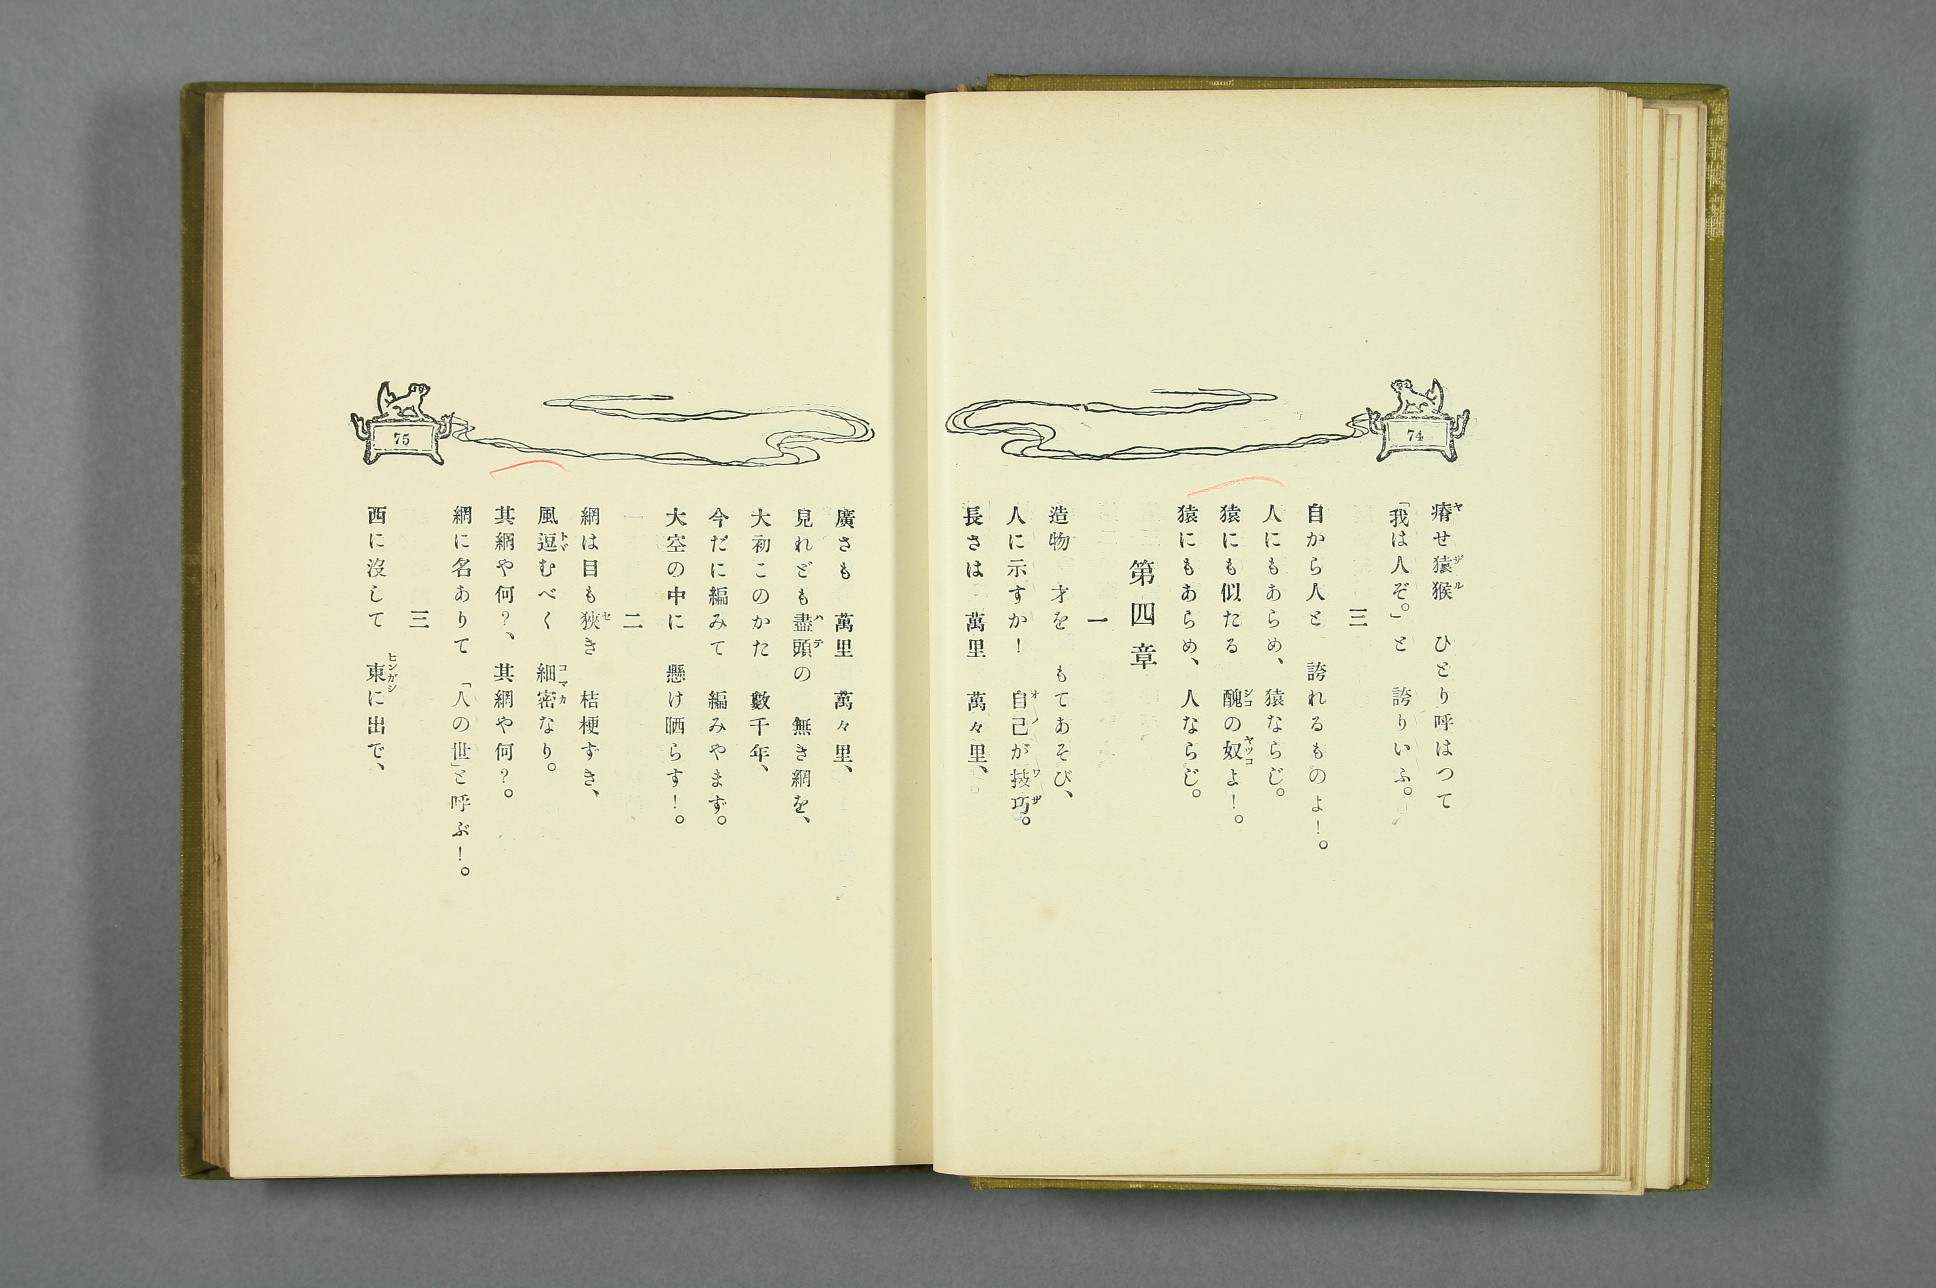 74
瘠せ猿猴　ひとり呼はつて
「我は人ぞ。」と　誇りいふ。
三
自から人と　誇れるものよ！。
人にもあらめ、猿ならじ。
猿にも似たる　醜の奴よ！。
猿にもあらめ、人ならじ。
第四章
一
造物　才を　もてあそび、
人に示すか！　自己が技巧。
長さは　萬里　萬々里、
75
廣さも　萬里　萬々里、
見れども盡頭の　無き網を、
大初このかた　數千年、
今だに編みて　編みやまず。
大空の中に　懸け晒らす！。
二
網は目も狹き　桔梗ずき、
風逗むべく　細密なり。
其網や何？、其網や何？。
網に名ありて　「人の世」と呼ぶ！。
三
西に沒して　東に出で、